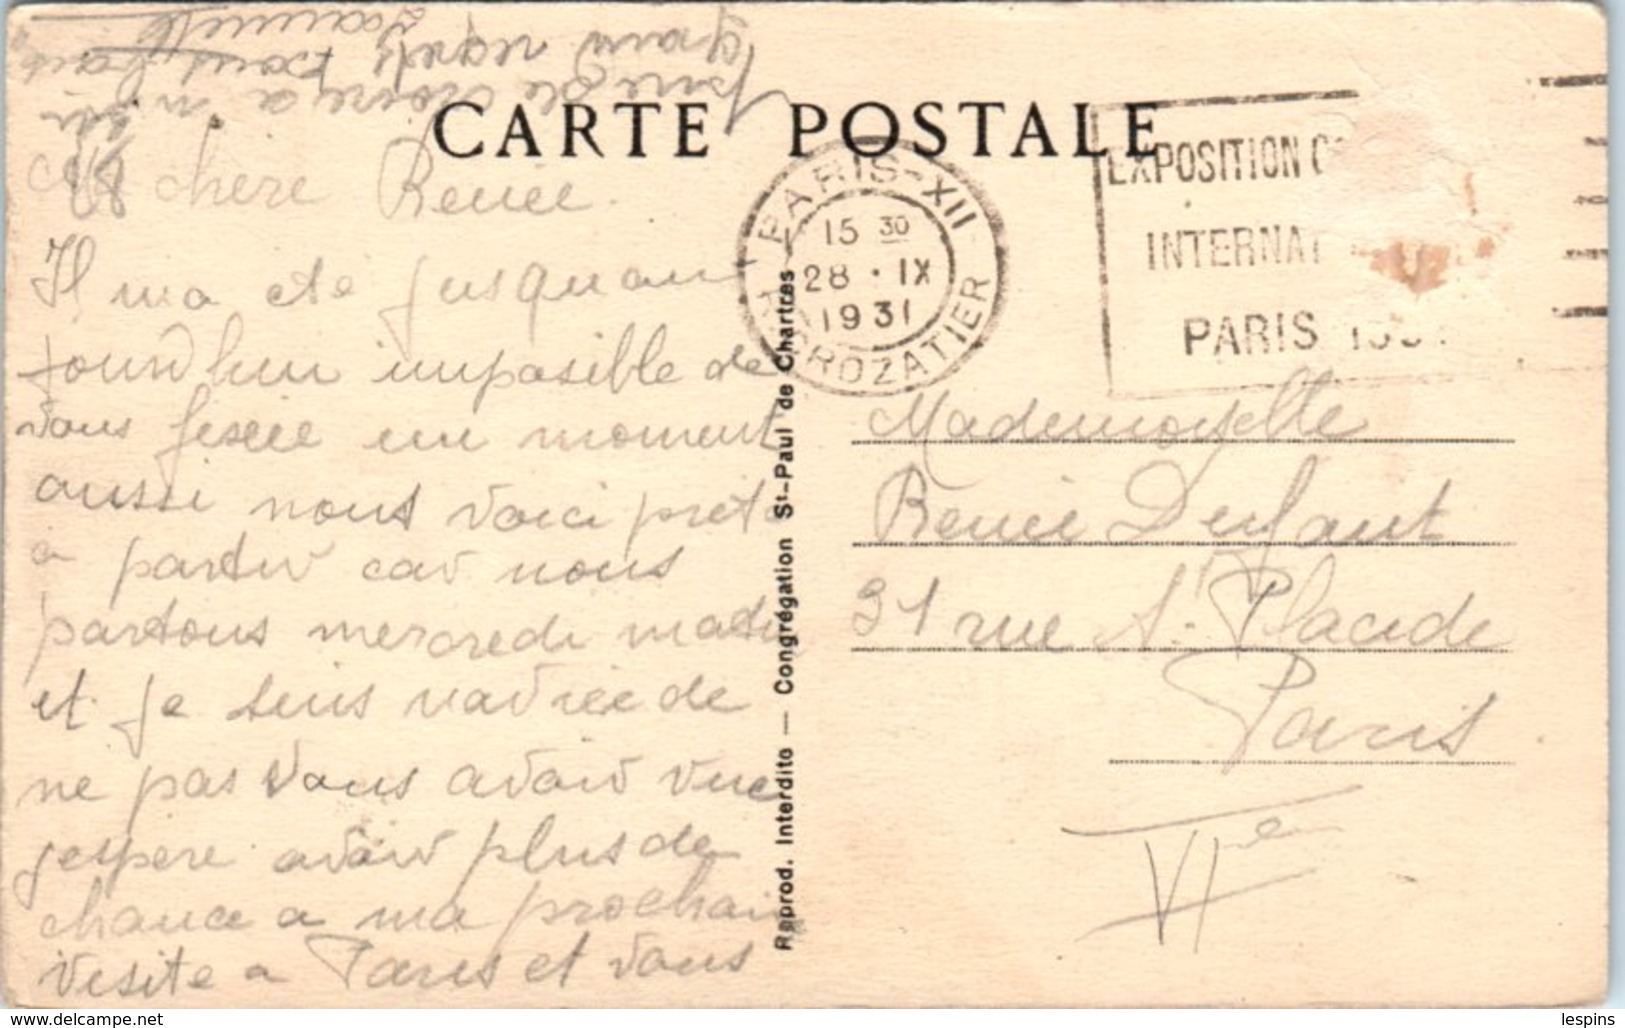 CARTE POSTALE
PARIS-XII
15 30
28 · IX
1931
R. CROZATIER
EXPOSITION
INTERNAT
PARIS
chère Renée
Il ma été jusquau
jourd'hui impossible de
vous fixée un moment
aussi nous voici prets
a partir car nous
partons mercredi matin
et je suis navrée de
ne pas vous avoir vue
j'espere avoir plus de
chance a ma prochaine
visite a Paris et vous
prie de croire a mon
grand regrets
Reprod. Interdite — Congrégation St-Paul de Chartres
Mademoiselle
Renée Dufaut
31 rue St. Placide
Paris
VIe
lespins
www.delcampe.net